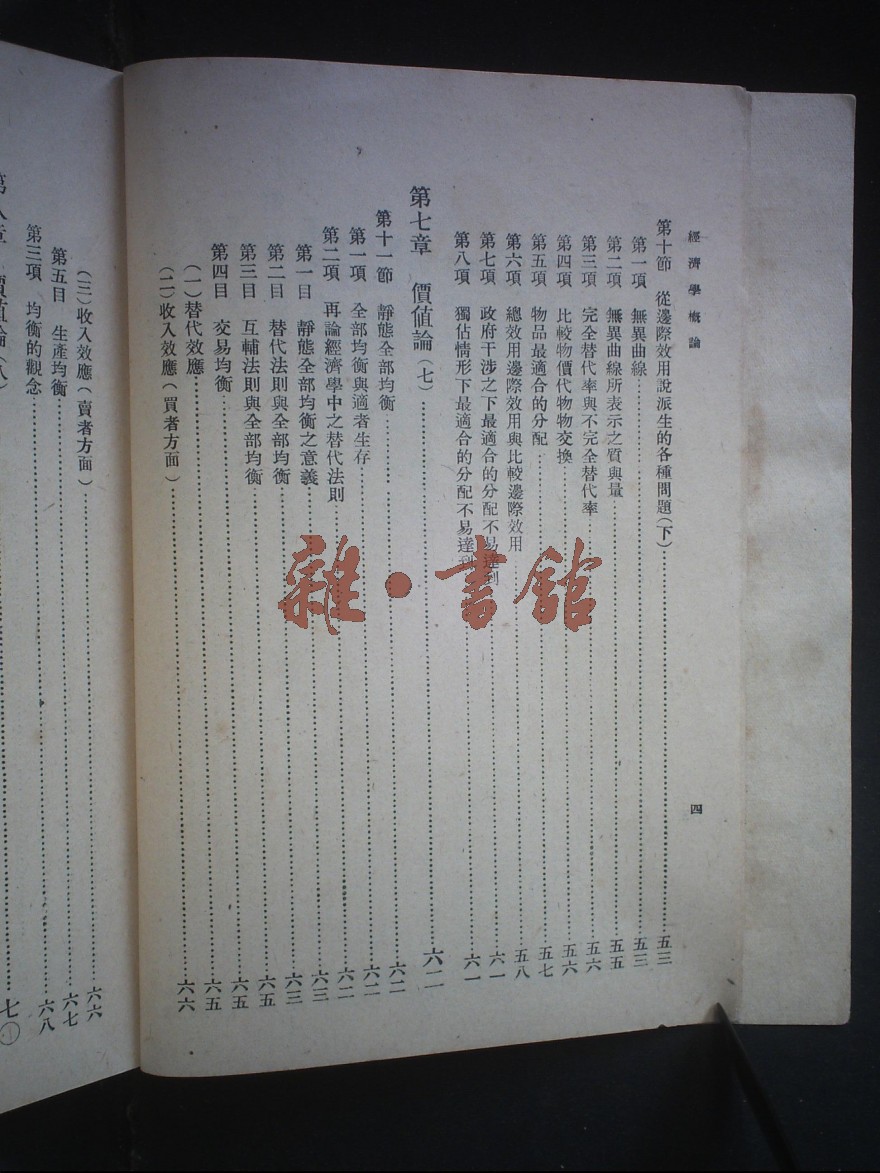 經濟學概論
四
第十節 從邊際效用說派生的各種問題(下)……五三
第一項 無異曲線……五三
第二項 無異曲線所表示之質與量……五五
第三項 完全替代率與不完全替代率……五六
第四項 比較物價代物物交換……五六
第五項 物品最適合的分配……五七
第六項 總效用邊際效用與比較邊際效用……五八
第七項 政府干涉之下最適合的分配不易達到……六一
第八項 獨佔情形下最適合的分配不易達到……六一
第七章 價值論(七)……六二
第十一節 靜態全部均衡……六二
第一項 全部均衡與適者生存……六二
第二項 再論經濟學中之替代法則……六二
第一目 靜態全部均衡之意義……六三
第二目 替代法則與全部均衡……六三
第三目 互輔法則與全部均衡……六五
第四目 交易均衡……六五
(一)替代效應……六五
(二)收入效應(買者方面)……六六
(三)收入效應(賣者方面)……六六
第五目 生產均衡……六七
第三項 均衡的觀念……六八
第八章 價值論(八)……七〇
雜·書館